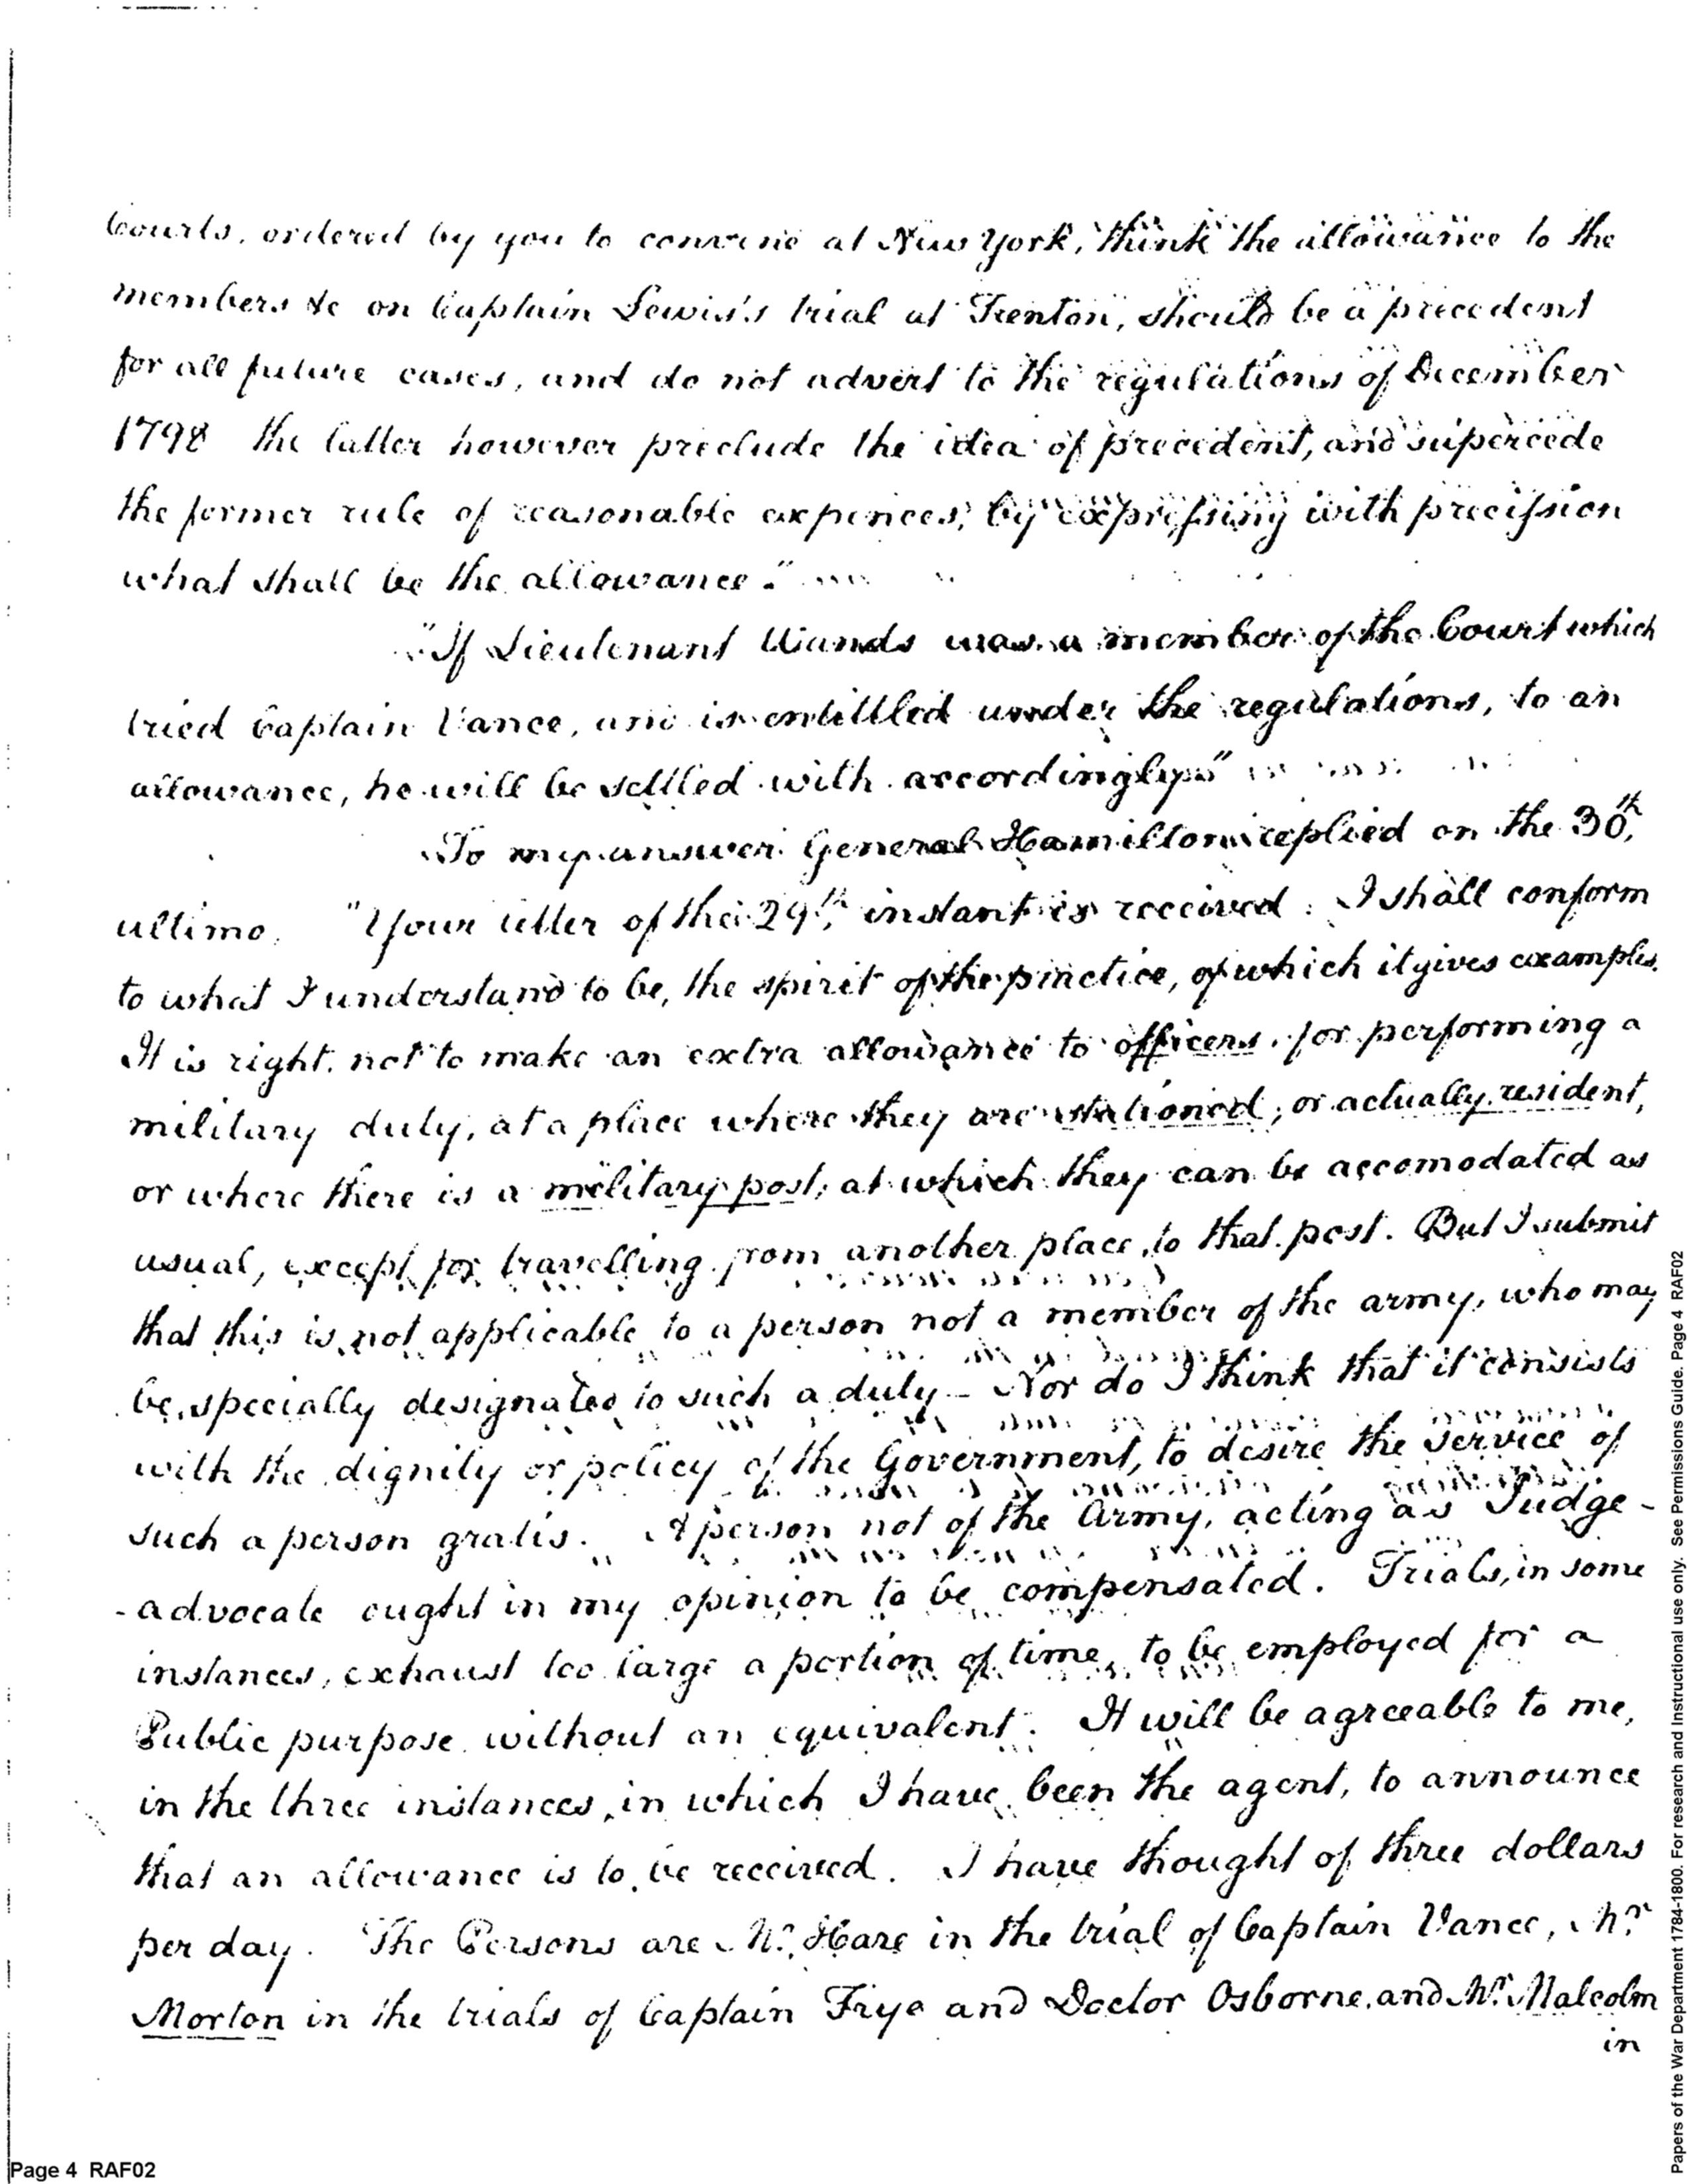 Courts, ordered by you to convene at New York, think the allowance to the
members &c on Captain Lewis's trial at Trenton, should be a precedent
for all future cases, and do not advert to the regulations of December
1798 the latter however preclude the idea of precedent, and supercede
the former rule of reasonable expences, by expressing with precission
what shall be the allowance."
"If Lieutenant Wands was a member of the Court which
tried Captain Vance, and is entittled under the regulations, to an
allowance, he will be settled with accordingly"
To my answer General Hamilton replied on the 30th,
ultimo. "Your letter of the 29th, instant is received. I shall conform
to what I understand to be, the spirit of the practice, of which it gives examples.
It is right not to make an extra allowance to officers, for performing a
military duty, at a place where they are stationed, or actually resident,
or where there is a military post, at which they can be accomodated as
usual, except for travelling from another place to that post. But I submit
that this is not applicable to a person not a member of the army, who may
be specially designated to such a duty - Nor do I think that it consists
with the dignity or policy of the Government, to desire the service of
such a person gratis. A person not of the Army, acting as Judge-
-advocate ought in my opinion to be compensated. Trials, in some
instances, exhaust too large a portion of time, to be employed for a
Public purpose without an equivalent. It will be agreeable to me,
in the three instances, in which I have been the agent, to announce
that an allowance is to be received. I have thought of three dollars
per day. The Persons are Mr. Hare in the trial of Captain Vance, Mr.
Morton in the trials of Captain Frye and Doctor Osborne, and Mr. Malcolm
in
Page 4 RAF02
Papers of the War Department 1784-1800. For research and Instructional use only. See Permissions Guide. Page 4 RAF02